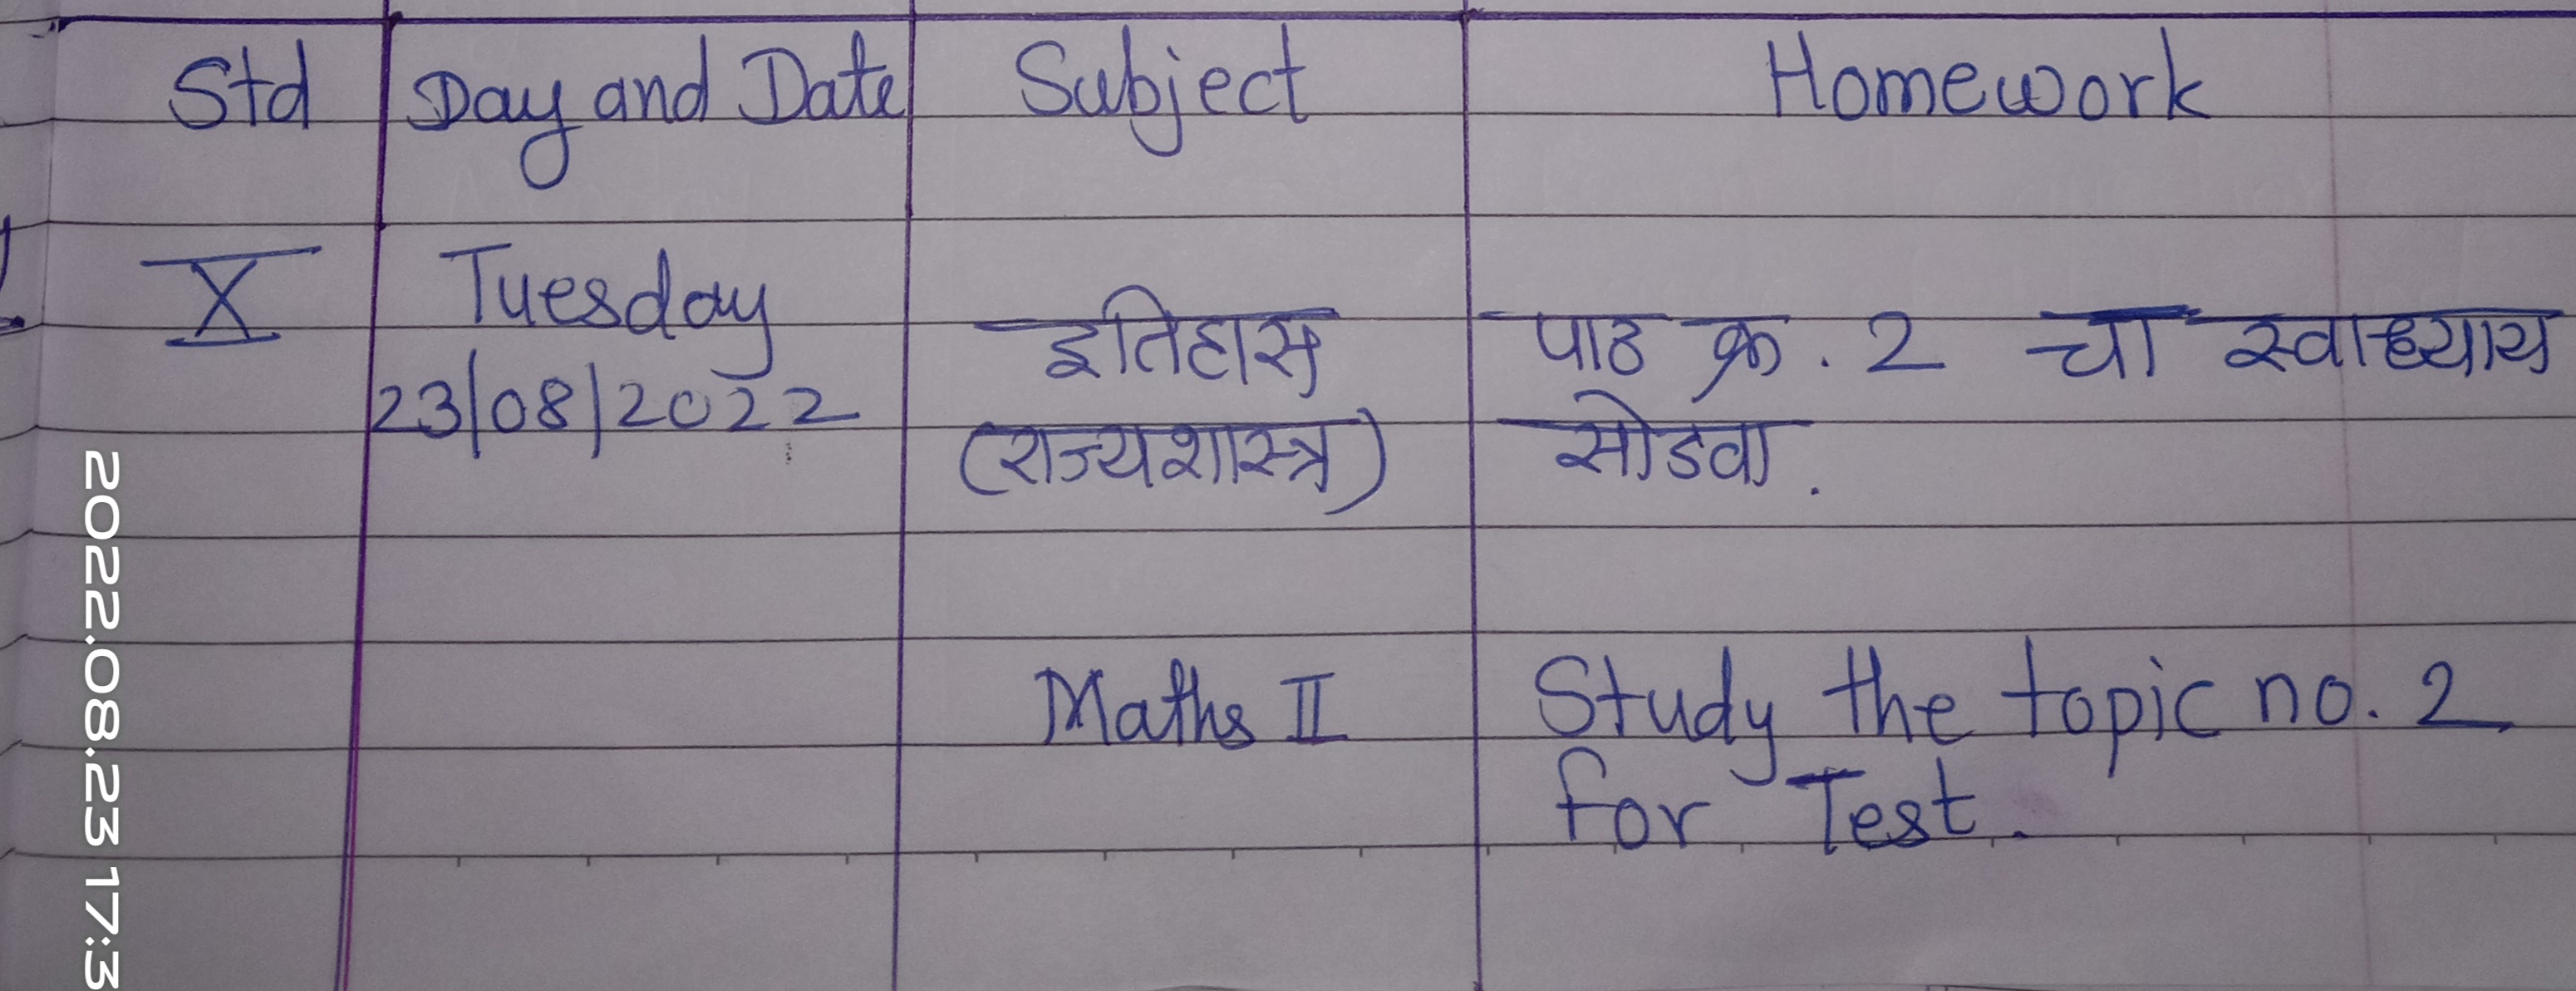 Std Day and Date Subject Homework
X Tuesday इतिहास पाठ क्र. 2 चा स्वाध्याय
23/08/2022 (राज्यशास्त्र) सोडवा.
Maths II Study the topic no. 2
for Test.
2022.08.23 17:3